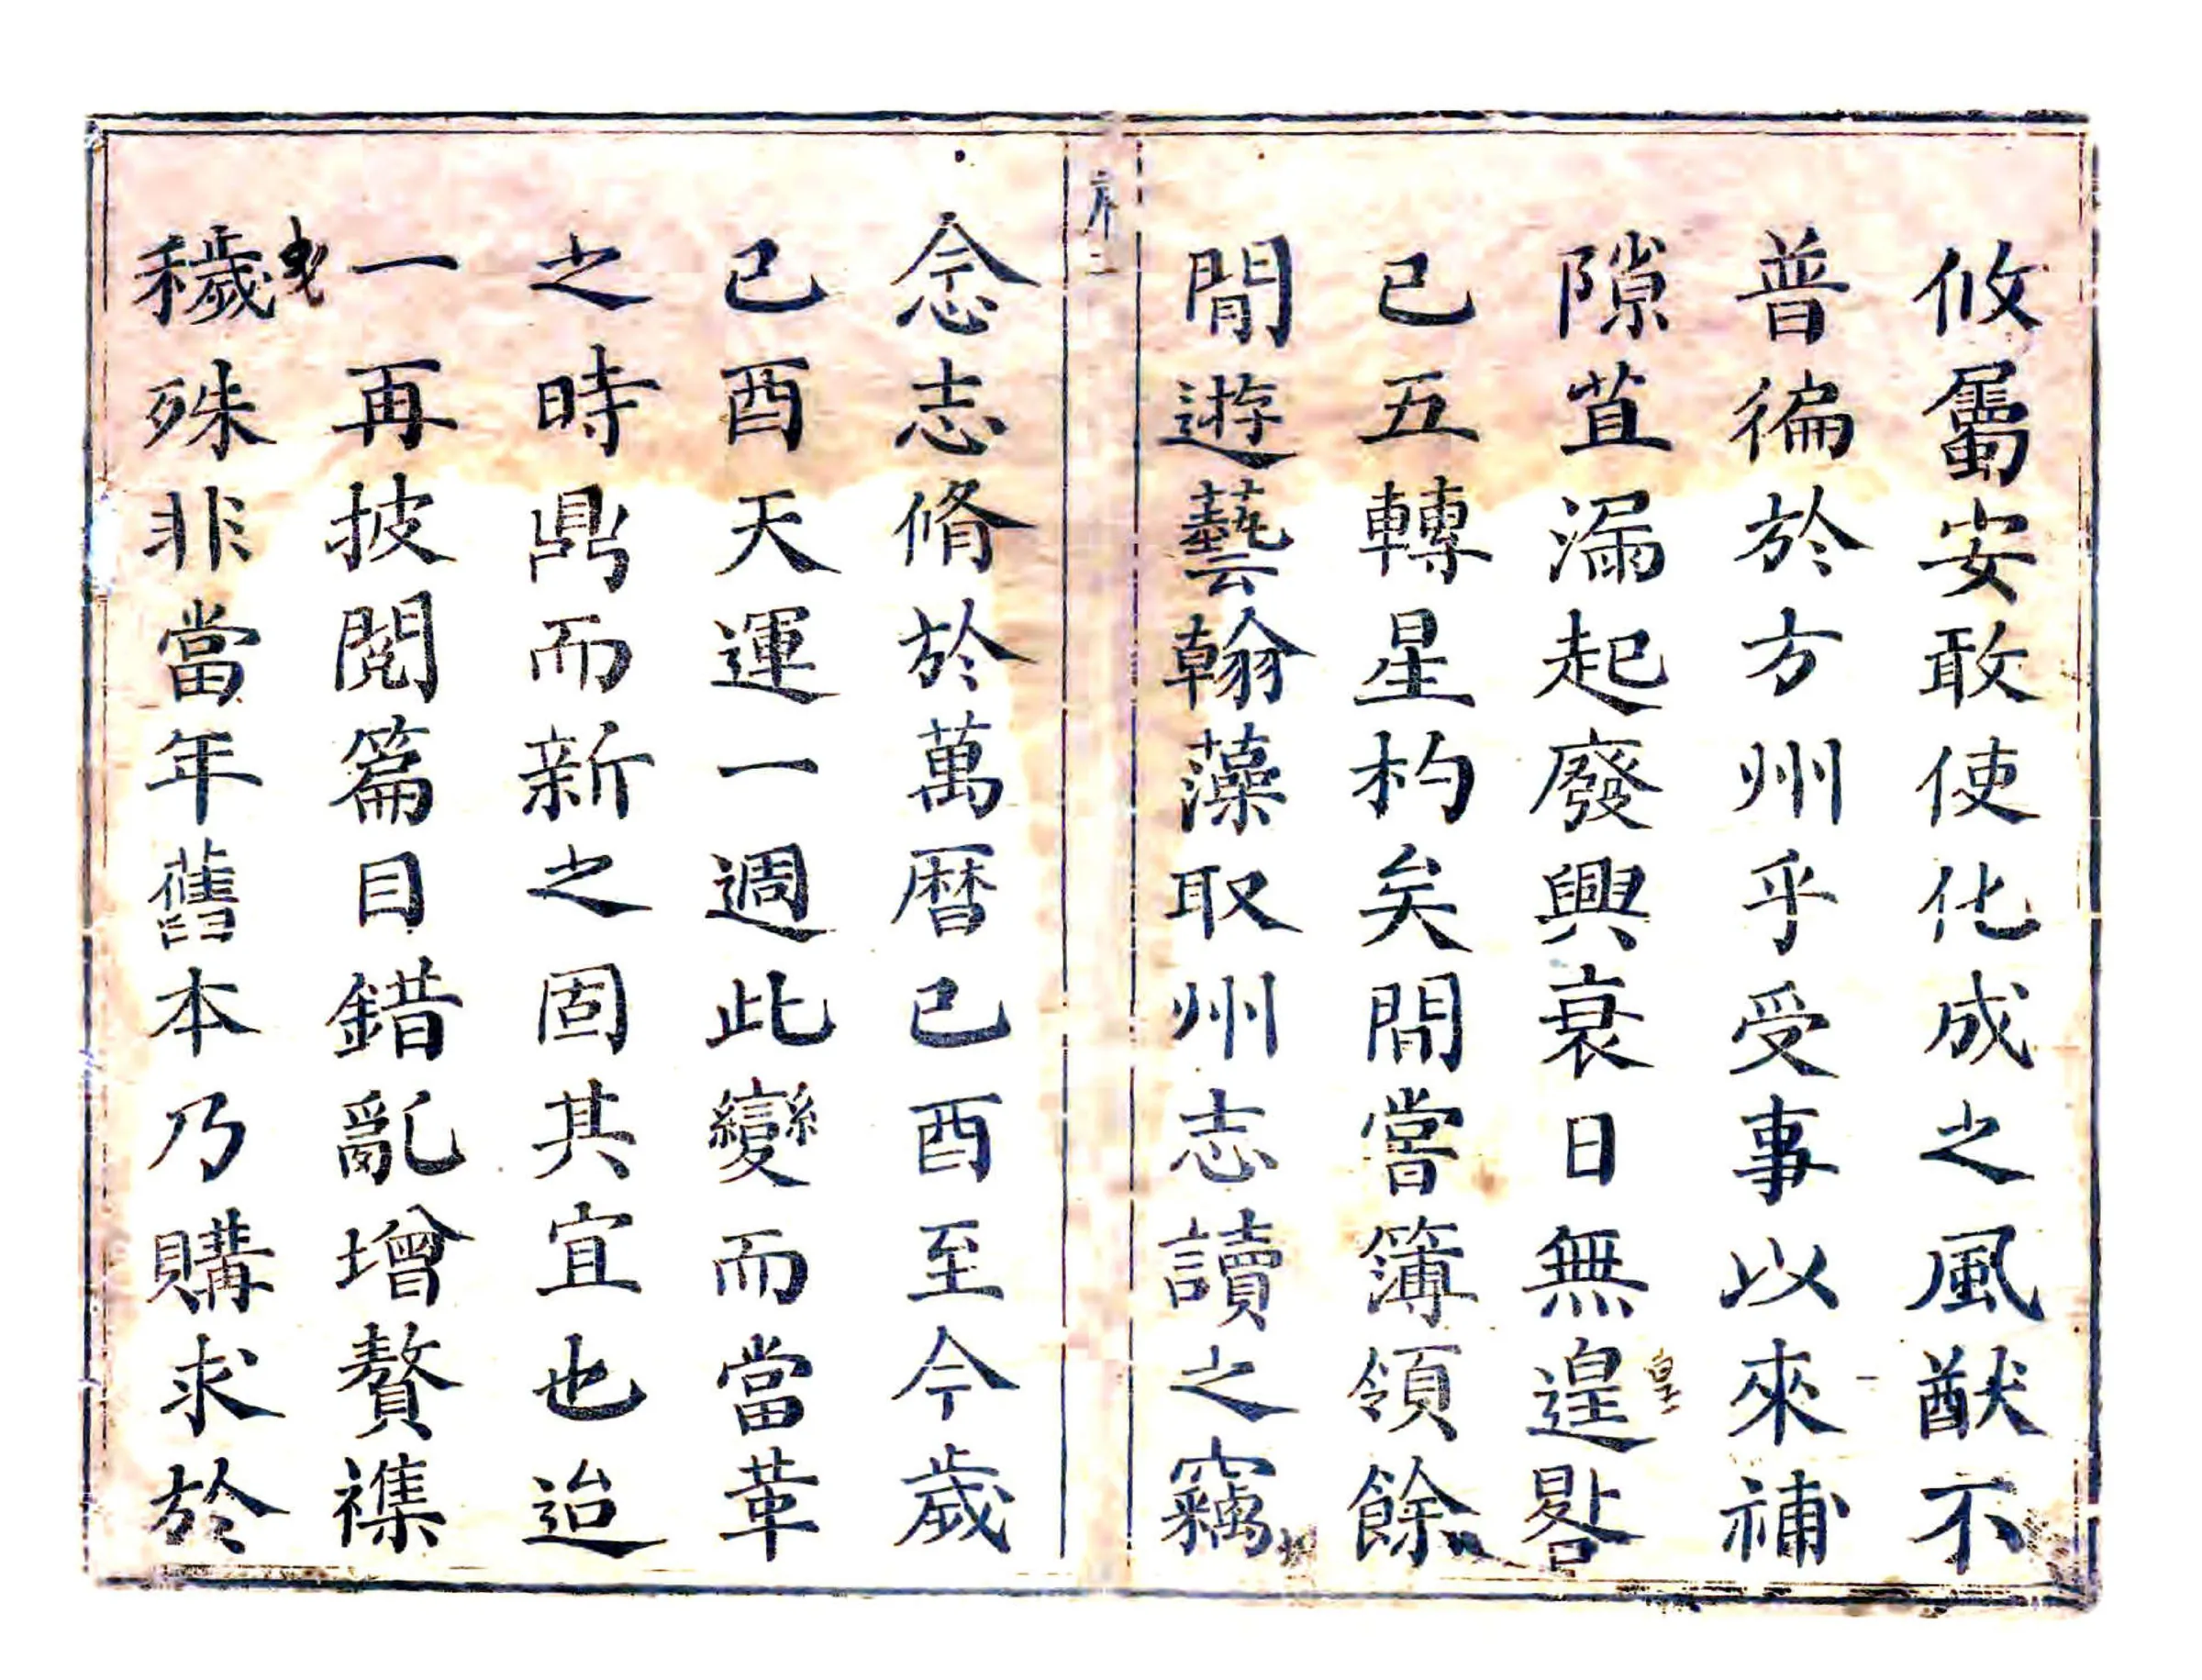 攸屬安敢使化成之風猷不
普徧於方州乎受事以來補
隙苴漏起廢興衰日無遑晷
皇
已五轉星杓矣間嘗簿領餘
閒遊藝翰藻取州志讀之竊
序二
念志脩於萬曆己酉至今歲
己酉天運一週此變而當革
之時鼎而新之固其宜也迨
一再披閱篇目錯亂增贅襍
穢殊非當年舊本乃購求於